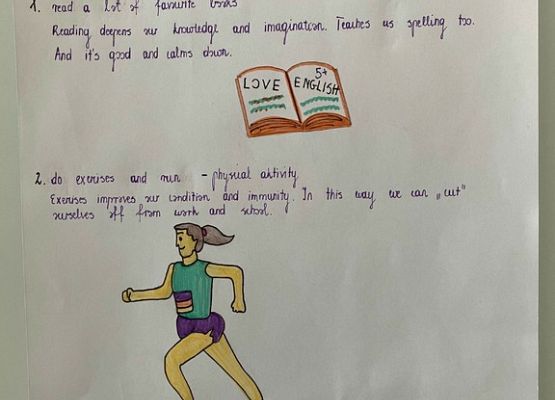 1. read a lot of favourite books
Reading deepens our knowledge and imagination. Teaches us spelling too.
And it's good and calms down.
LOVE
5+
ENGLISH
2. do exercises and run - physical aktivity
Exercises improves our condition and immunity. In this way we can „cut”
ourselves off from work and school.